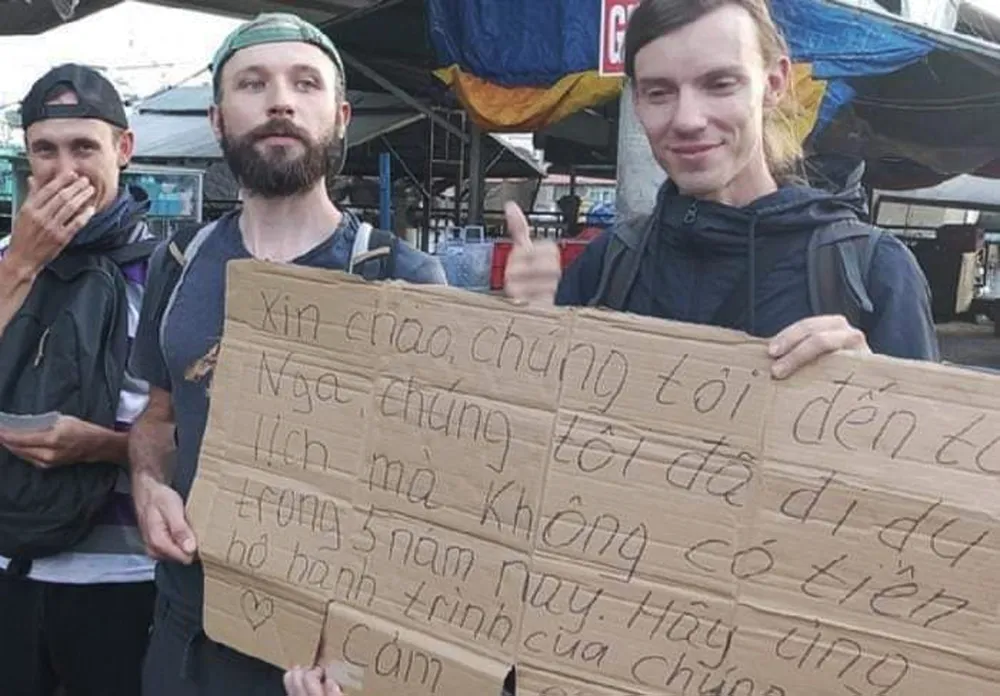 Xin chao, chúng tôi đến từ
Nga, chúng tôi đã đi du
lịch mà Không có tiền
trong 5 năm nay. Hãy ủng
hộ hành trình của chúng
♡ Cám